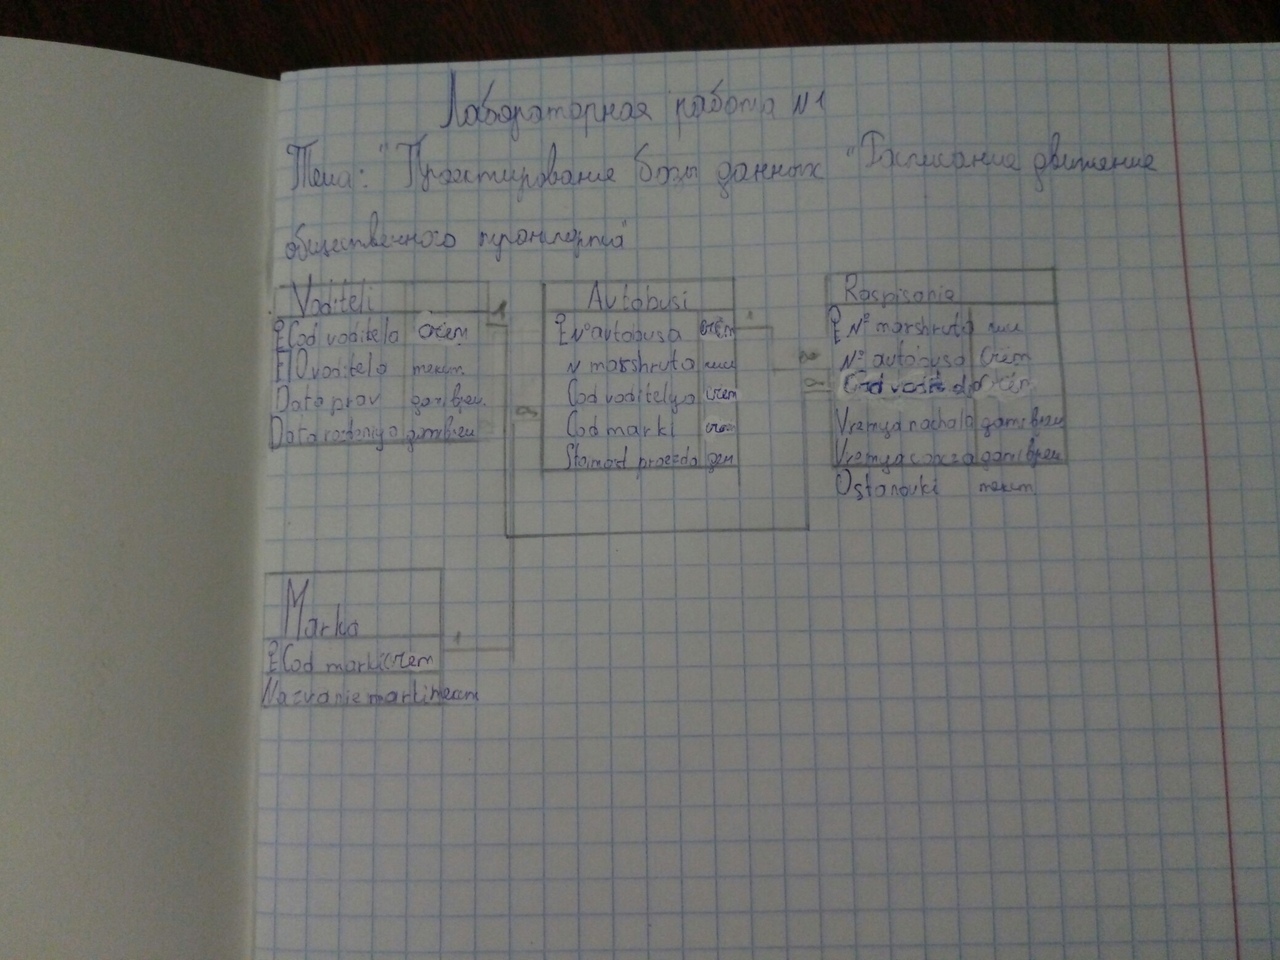 Лабораторная работа N1
Тема: "Проэктирование базы данных "Расписание движение
общественного транспорта"
Voditeli
Cod voditela счём
FIO voditela текст
Data prav дат/врем
Data rozdeniya дат/врем
Avtobusi
N° avtobusa счём
N marshruta числ
Cod voditelya счем
Cod marki счем
Stoimost proezda ден
Raspisanie
N° marshruta числ
N° avtobusa счём
Cod voditela счём
Vremya nachala дат/врем
Vremya conca дат/врем
Ostanovki текст
1
∞
1
∞
∞
Marka
Cod marki счем
Nazvanie marki текст
1